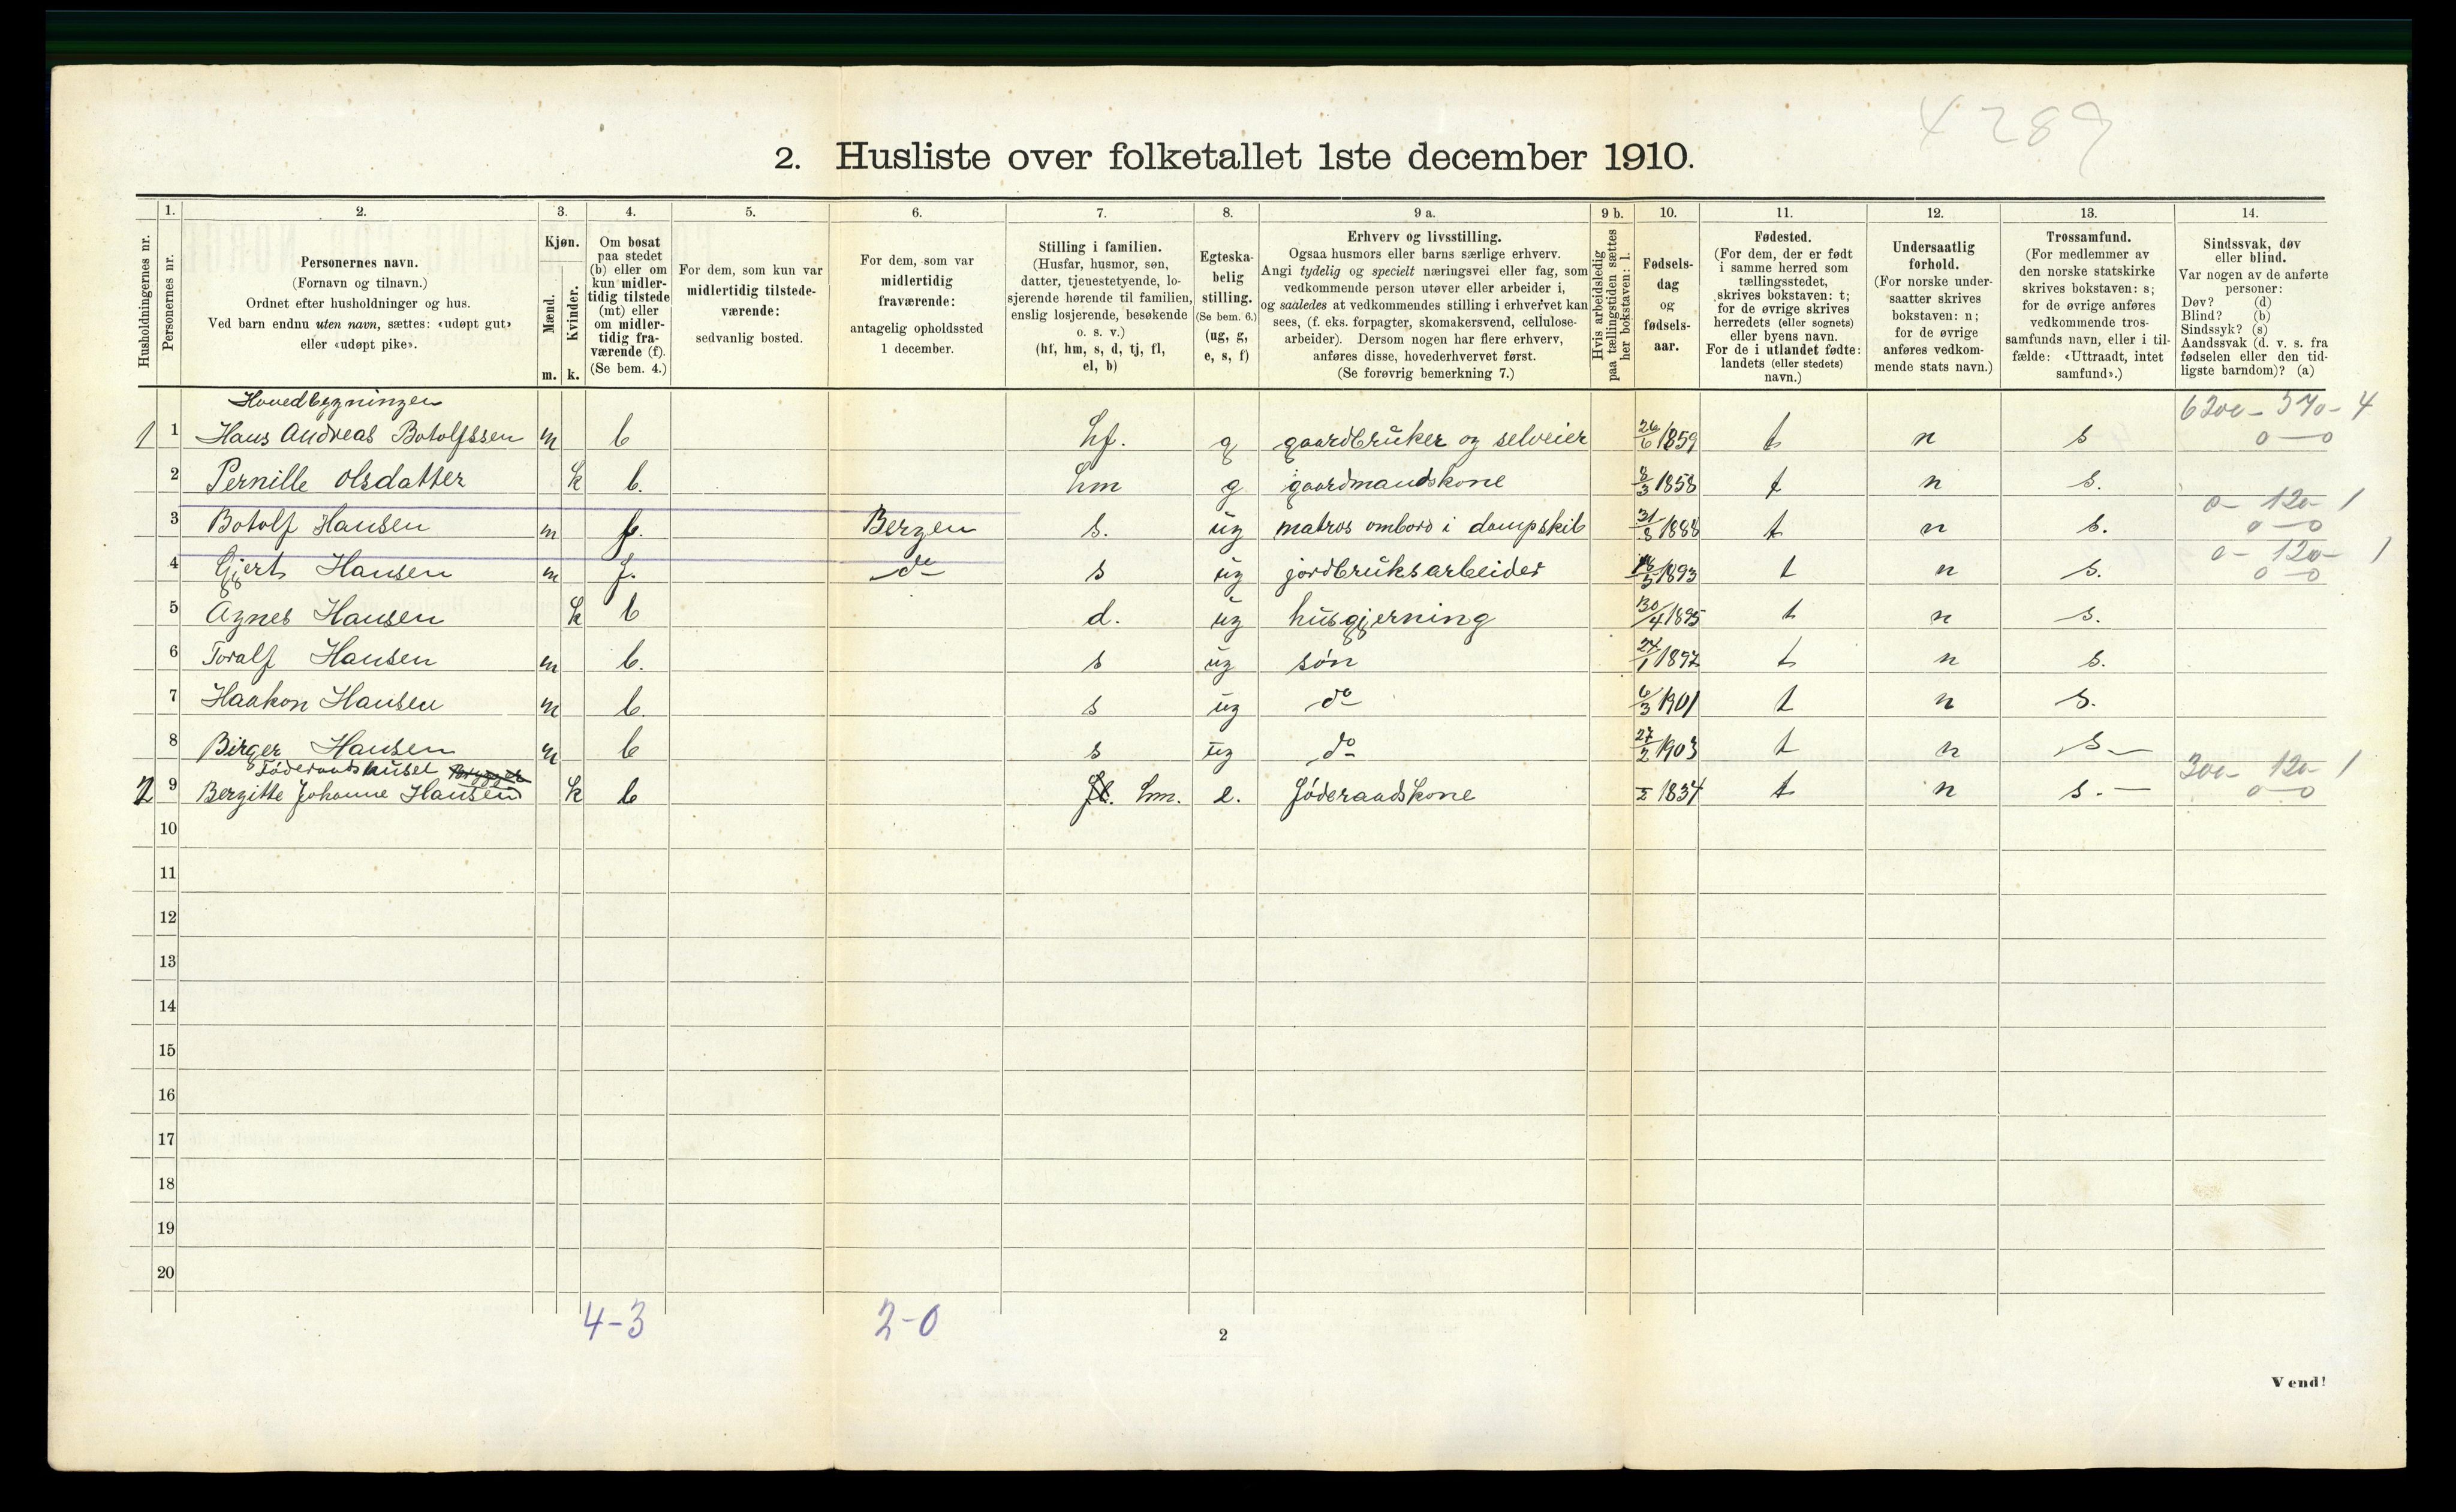 4289
2. Husliste over folketallet 1ste december 1910.
Husholdningernes nr.
1. Personernes nr.
2. Personernes navn.
(Fornavn og tilnavn.)
Ordnet efter husholdninger og hus.
Ved barn endnu uten navn, sættes: «udøpt gut»
eller «udøpt pike».
3. Kjøn.
Mænd. m.
Kvinder. k.
4. Om bosat
paa stedet
(b) eller om
kun midler-
tidig tilstede
(mt) eller
om midler-
tidig fra-
værende (f).
(Se bem. 4.)
5. For dem, som kun var
midlertidig tilstede-
værende:
sedvanlig bosted.
6. For dem, som var
midlertidig
fraværende:
antagelig opholdssted
1 december.
7. Stilling i familien.
(Husfar, husmor, søn,
datter, tjenestetyende, lo-
sjerende hørende til familien,
enslig losjerende, besøkende
o. s. v.)
(hf, hm, s, d, tj, fl,
el, b)
8. Egteska-
belig
stilling.
(Se bem. 6.)
(ug, g,
e, s, f)
9 a. Erhverv og livsstilling.
Ogsaa husmors eller barns særlige erhverv.
Angi tydelig og specielt næringsvei eller fag, som
vedkommende person utøver eller arbeider i,
og saaledes at vedkommendes stilling i erhvervet kan
sees, (f. eks. forpagter, skomakersvend, cellulose-
arbeider). Dersom nogen har flere erhverv,
anføres disse, hovederhvervet først.
(Se forøvrig bemerkning 7.)
9 b. Hvis arbeidsledig
paa tællingstiden sættes
her bokstaven: l.
10. Fødsels-
dag
og
fødsels-
aar.
11. Fødested.
(For dem, der er født
i samme herred som
tællingsstedet,
skrives bokstaven: t;
for de øvrige skrives
herredets (eller sognets)
eller byens navn.
For de i utlandet fødte:
landets (eller stedets)
navn.)
12. Undersaatlig
forhold.
(For norske under-
saatter skrives
bokstaven: n;
for de øvrige
anføres vedkom-
mende stats navn.)
13. Trossamfund.
(For medlemmer av
den norske statskirke
skrives bokstaven: s;
for de øvrige anføres
vedkommende tros-
samfunds navn, eller i til-
fælde: «Uttraadt, intet
samfund».)
14. Sindssvak, døv
eller blind.
Var nogen av de anførte
personer:
Døv? (d)
Blind? (b)
Sindssyk? (s)
Aandssvak (d. v. s. fra
fødselen eller den tid-
ligste barndom)? (a)
Hovedbygningen 6200 - 570 - 4
1 1 Hans Andreas Botolfssen m b hf. g gaardbruker og selveier 26/6 1859 t n s 0-0
2 Pernille Olsdatter k b. hm g gaardmandskone 8/3 1858 t n s.
0- 120- 1
3 Botolf Hansen m f. Bergen s. ug matros ombord i dampskib 31/8 1888 t n s. 0-0
0- 120- 1
4 Gjert Hansen m f. do s ug jordbruksarbeider 1893 t n s. 0-0
5 Agnes Hansen k b d. ug husgjerning 30/4 1895 t n s.
6 Toralf Hansen m b. s ug søn 24/1 1897 t n s.
7 Haakon Hansen m b. s ug do 6/3 1901 t n s.
8 Birger Hansen m b s ug do 27/2 1903 t n s
Föderaadshuset 300- 120- 1
2 9 Bergitte Johanne Hansen k b fl. hm. e. föderaadskone 1834 t n s. 0-0
10
11
12
13
14
15
16
17
18
19
20
4-3 2-0
2
Vend!